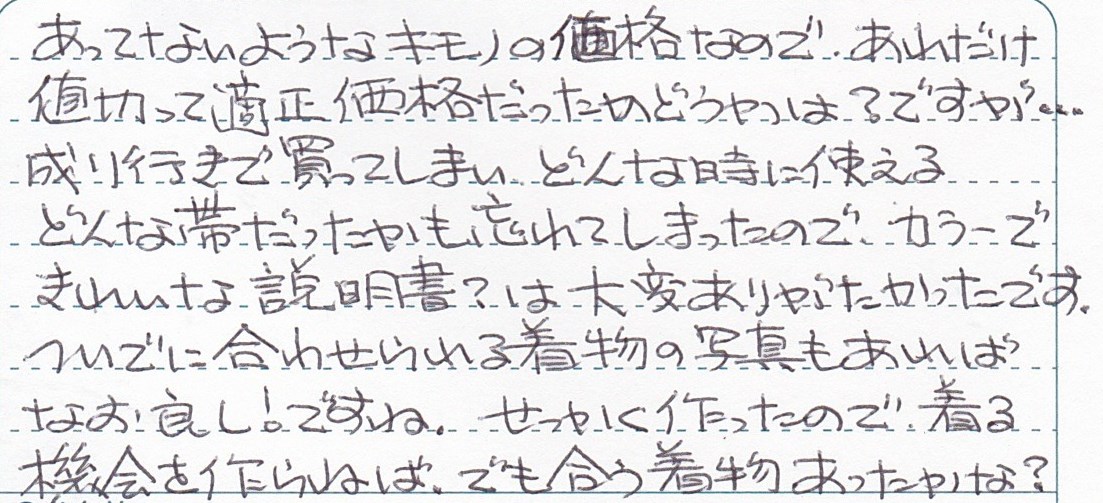 あってないようなキモノの価格なので、あれだけ
値切って適正価格だったかどうかは？ですが…
成り行きで買ってしまい、どんな時に使える
どんな帯だったかも忘れてしまったので、カラーで
きれいな説明書？は大変ありがたかったです。
ついでに合わせられる着物の写真もあれば
なお良し！ですね。せっかく作ったので、着る
機会を作らねば、でも合う着物あったかな？